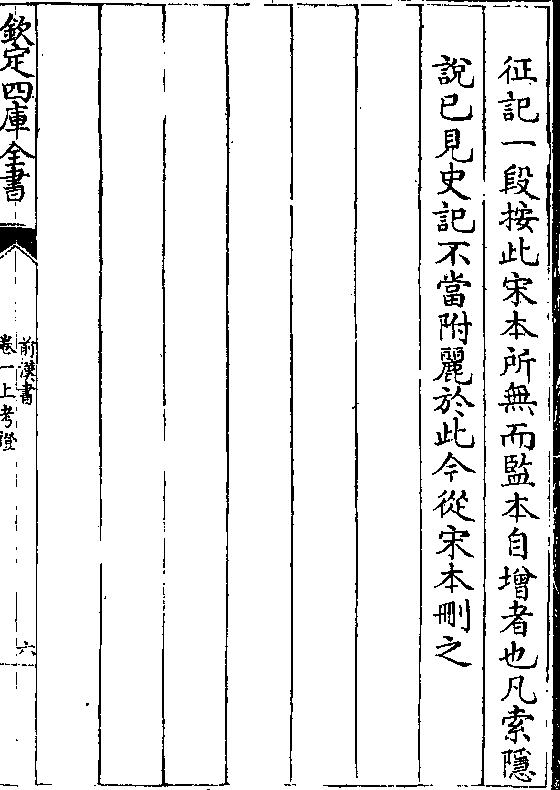 征記一段按此宋本所無而監本自增者也凡索隱
說已見史記不當附麗於此今從宋本刪之
欽定四庫全書
前漢書
卷一上考證
六